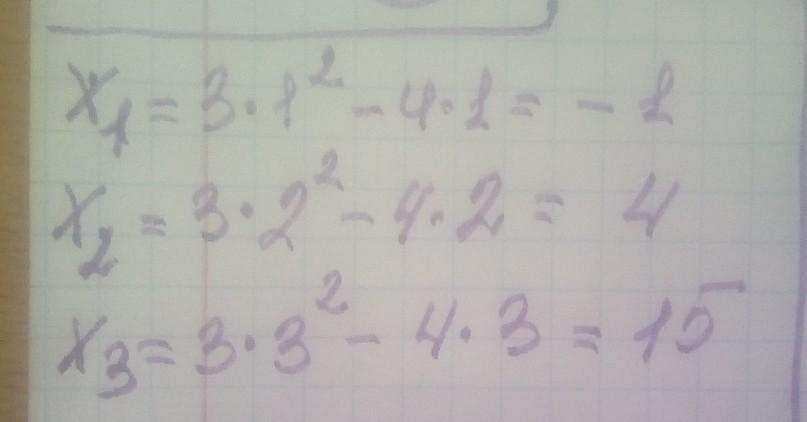 x₁ = 3·1² - 4·1 = -1
x₂ = 3·2² - 4·2 = 4
x₃ = 3·3² - 4·3 = 15